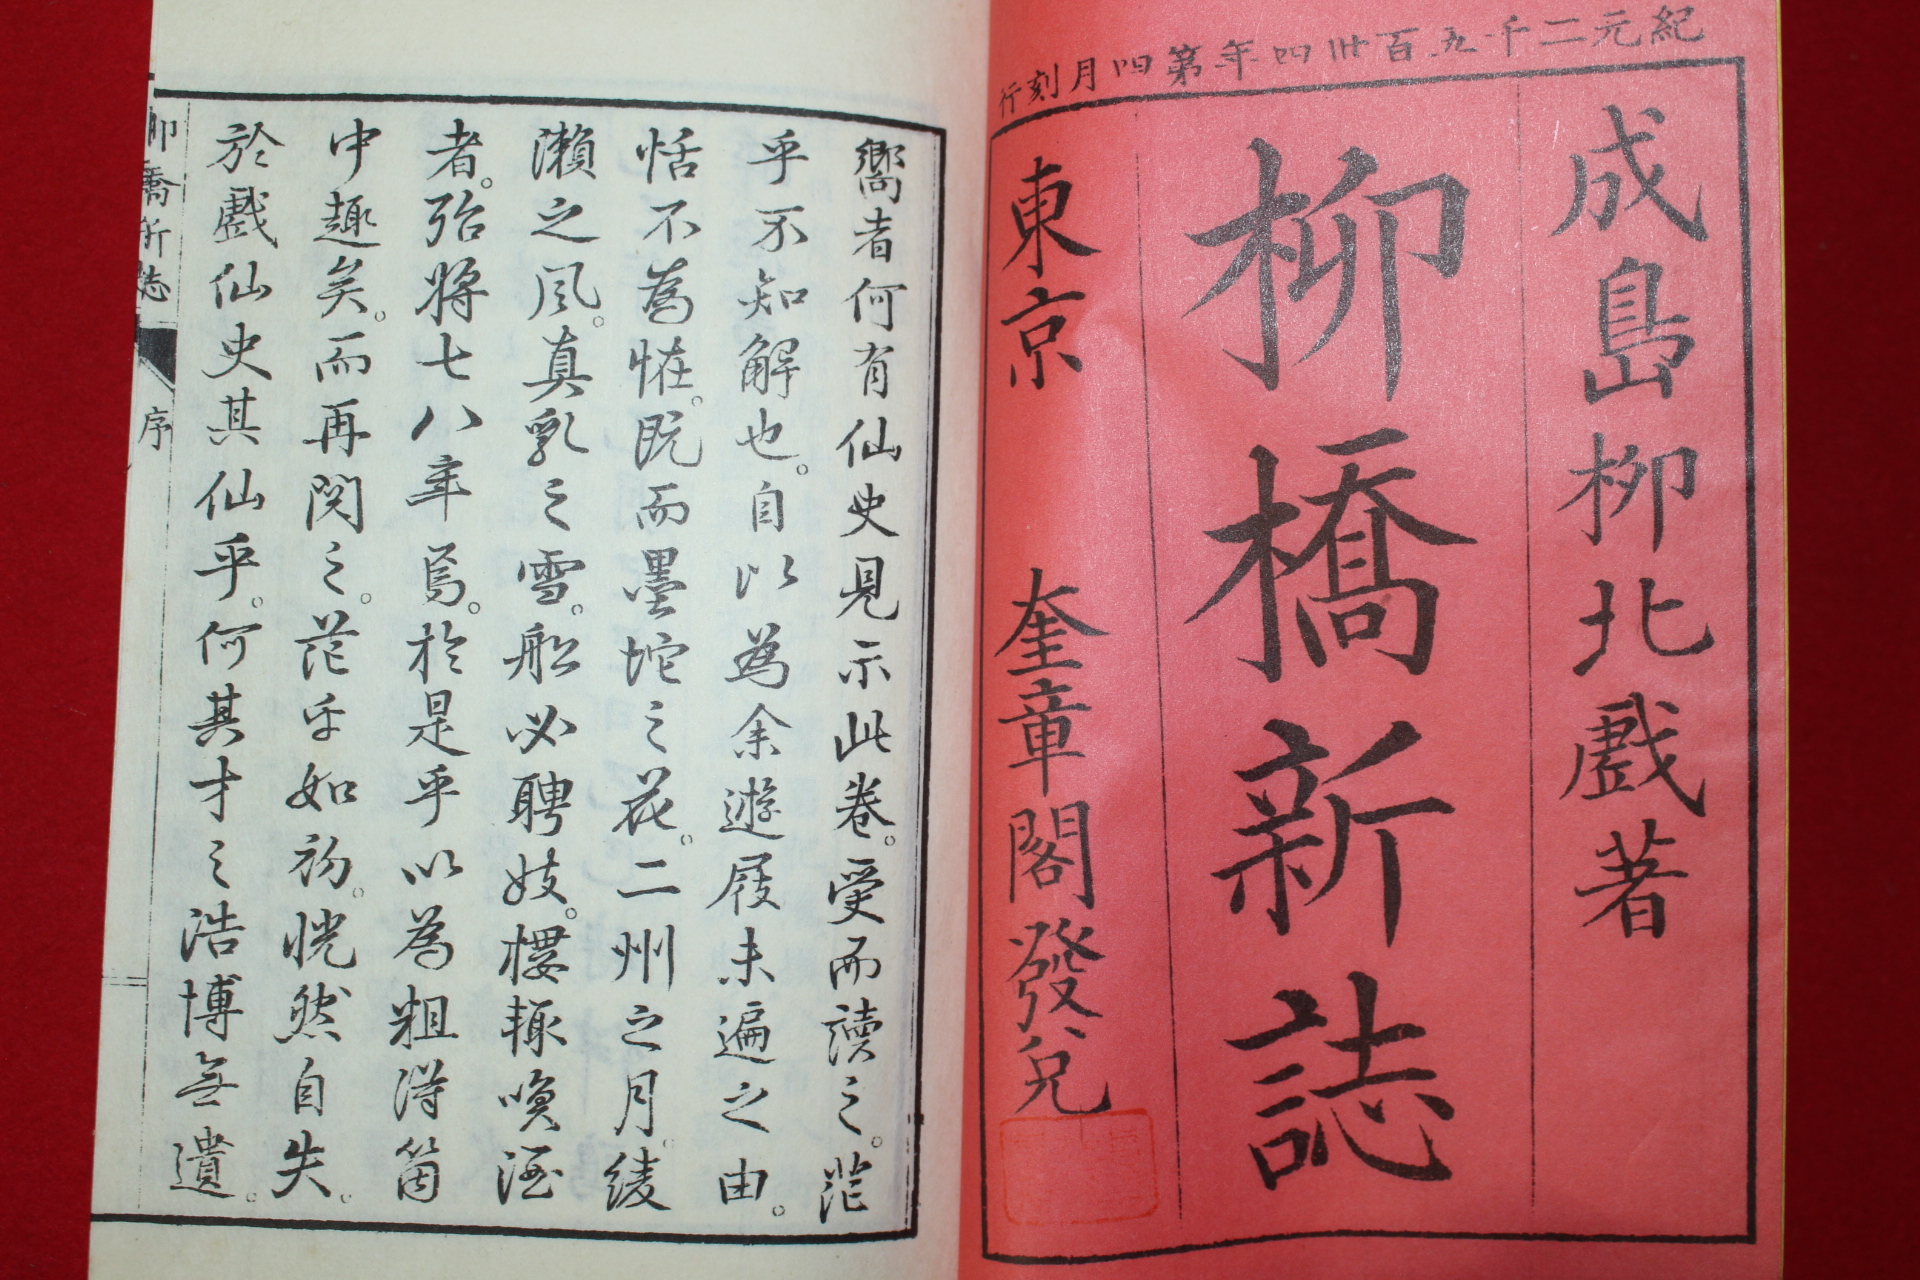 紀元二千五百卅四年第四月刻行
成島柳北戲著
柳橋新誌
東京 奎章閣發兌
嚮者何有仙史見示此卷。受而讀之。茫
乎不知解也。自以為余遊履未遍之由。
恬不為怪。既而墨坨之花。二州之月。綾
瀨之風。真乳之雪。船必聘妓。樓輙喚酒
者。殆將七八年焉。於是乎以為粗得箇
中趣矣。而再閱之。茫乎如初。恍然自失。
於戲仙史其仙乎。何其才之浩博無遺。
柳橋新誌 序